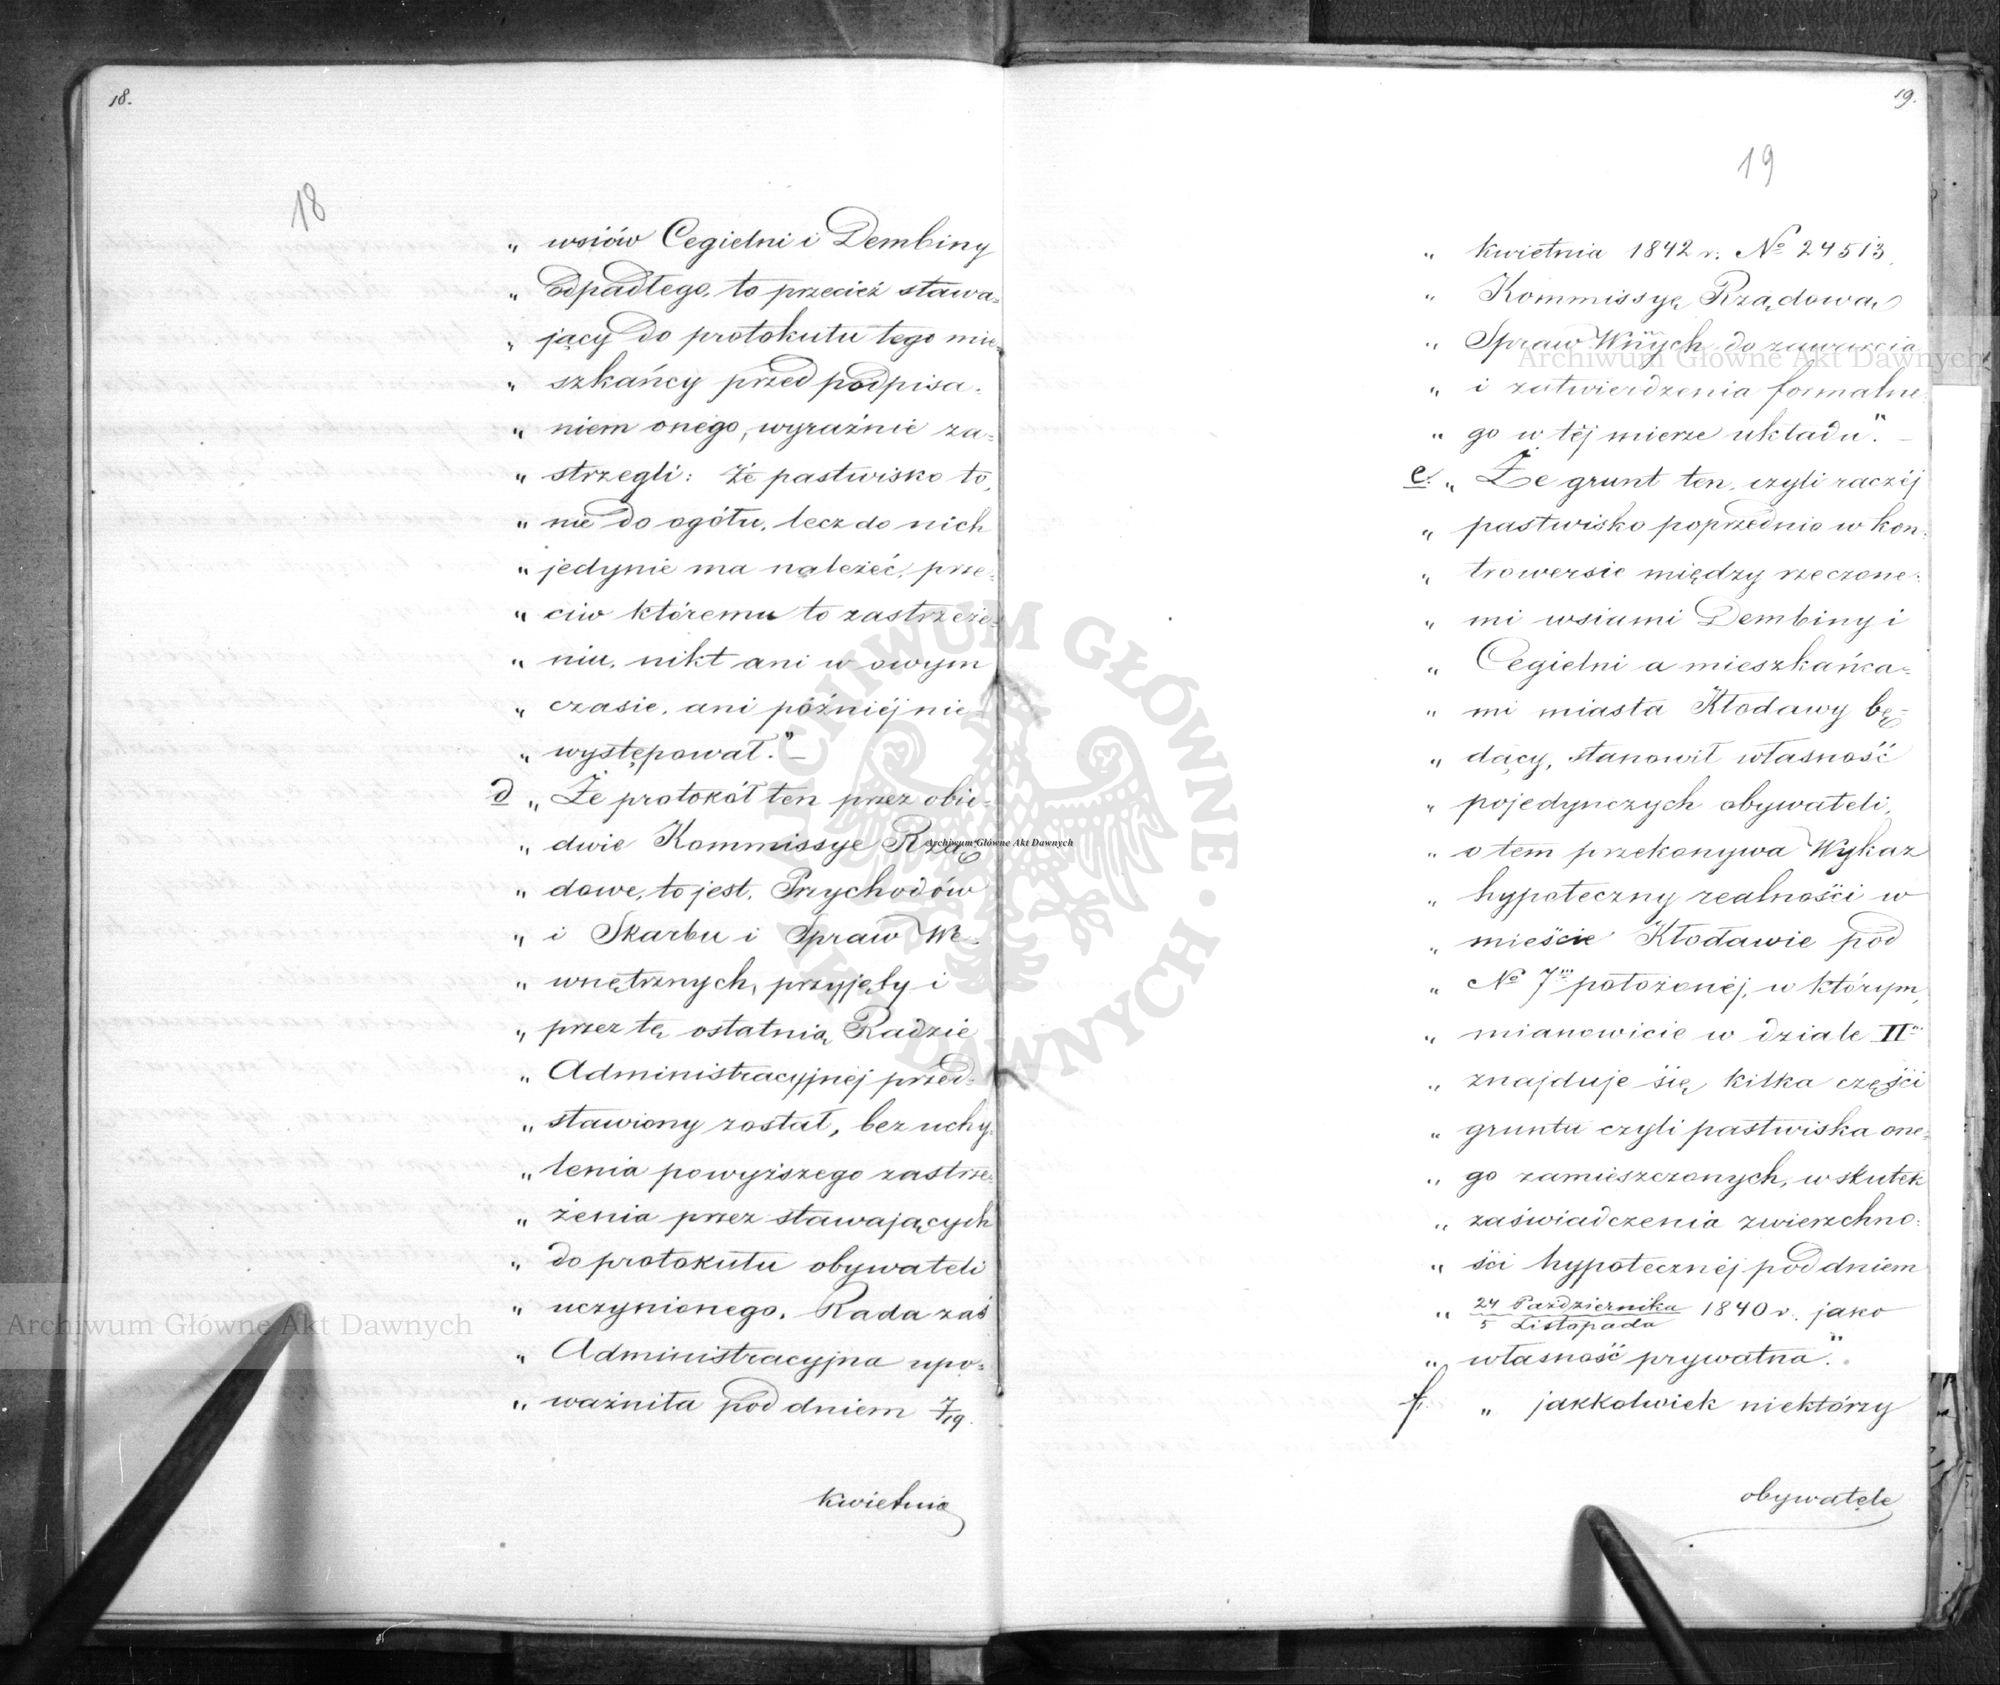 18.
18
„ wsiów Cegielni i Dembiny
„ odpadłego, to przecież stawa-
„ jący do protokułu tego mie-
„ szkańcy przed podpisa-
„ niem onego, wyraźnie za-
„ strzegli: że pastwisko to,
„ nie do ogółu, lecz do nich
„ jedynie ma należeć, prze-
„ ciw któremu to zastrzeże-
„ niu, nikt ani w owym
„ czasie, ani później nie
„ występował." –
d „ Że protokół ten przez obie-
„ dwie Kommissye Rzą-
„ dowe, to jest, Przychodów
„ i Skarbu i Spraw We-
„ wnętrznych, przyjęły i
„ przez tę ostatnią Radzie
„ Administracyjnéj przed-
„ stawiony został, bez uchy-
„ lenia powyższego zastrze-
„ żenia przez stawających
„ do protokułu obywateli
„ uczynionego. Rada zaś
„ Administracyjna upo-
„ ważniła pod dniem 7/19.
kwietnia
19.
19
„ kwietnia 1842 r. No 24513,
„ Kommissyę Rządową
„ Spraw Wnych do zawarcia
„ i zatwierdzenia formalne-
„ go w téj mierze układu". –
e. „ Że grunt ten, czyli raczéj
„ pastwisko poprzednio w kon-
„ trowersie między rzeczone-
„ mi wsiami Dembiny i
„ Cegielni a mieszkańca-
„ mi miasta Kłodawy bę-
„ dący, stanowił własność
„ pojedynczych obywateli,
„ o tem przekonywa Wykaz
„ hypoteczny realności w
„ mieście Kłodawie pod
„ No 7m położonéj, w którym,
„ mianowicie w dziale IIm
„ znajduje się kilka części
„ gruntu czyli pastwiska one-
„ go zamieszczonych, w skutek
„ zaświadczenia zwierzchno-
„ ści hypotecznéj pod dniem
„ 24 Października / 5 Listopada 1840 r. jako
„ własność prywatna".
f. „ jakkolwiek niektórzy
obywatele
Archiwum Główne Akt Dawnych
Archiwum Główne Akt Dawnych
Archiwum Główne Akt Dawnych
ARCHIWUM GŁÓWNE AKT DAWNYCH